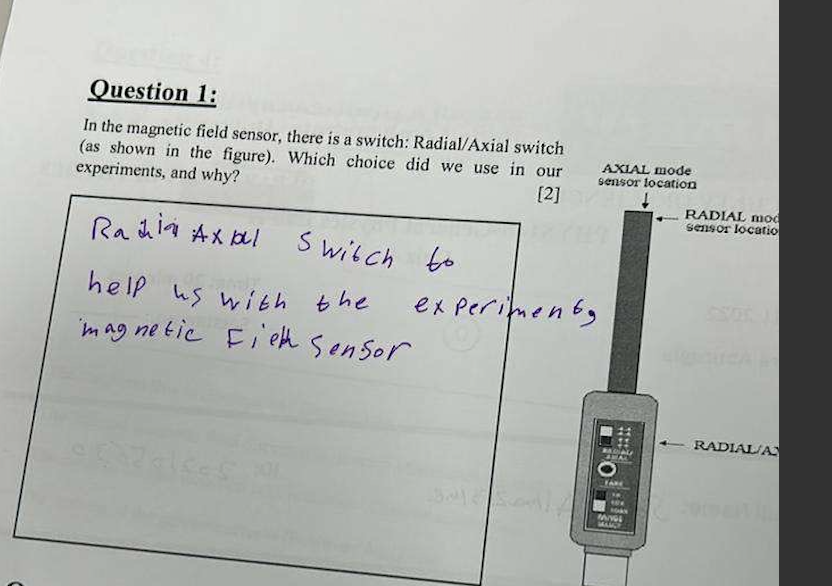 Question 1:
In the magnetic field sensor, there is a switch: Radial/Axial switch
(as shown in the figure). Which choice did we use in our
experiments, and why?
[2]
AXIAL mode
sensor location
RADIAL mod
sensor locatio
Switch to
help us with the experiments
magnetic Field Sensor
RADIAL/AX
RADIAL/
AXIAL
TARE
RANGE
SELECT